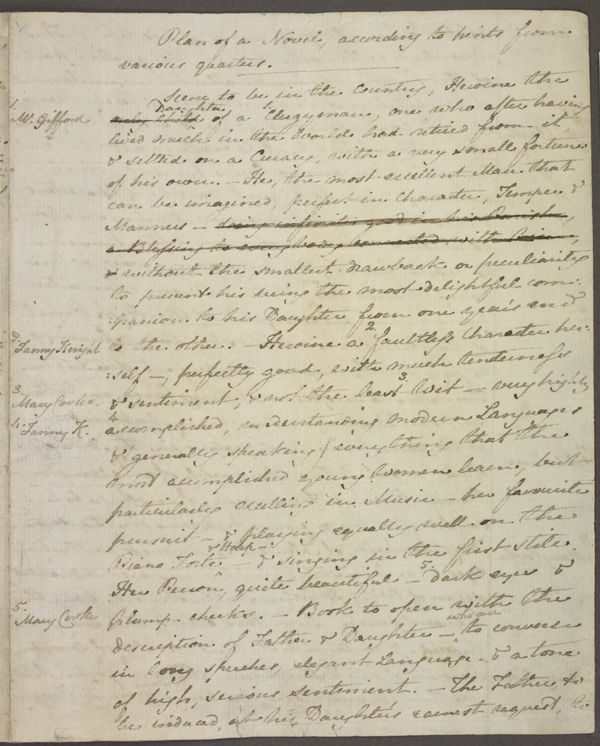 Plan of a Novel, according to hints from
various quarters.
Scene to be in the Country, Heroine the
1.
Mr. Gifford
Daughter
only child of a 1 Clergyman, one who after having
lived much in the World had retired from it,
& settled on a Curacy, with a very small fortune
of his own. - He, the most excellent Man that
can be imagined, perfect in Character, Temper &
Manners -
- without the smallest drawback or peculiarity
to prevent his being the most delightful com-
:panion to his Daughter from one year's end
2
Fanny Knight
to the other. - Heroine a 2 faultless Character her-
:self -, perfectly good, with much tenderness
3
Mary Cooke
& sentiment, & not the least 3 Wit - very highly
4.
Fanny K.
4 accomplished, understanding modern Languages
& (generally speaking) everything that the
most accomplished young Women learn, but
particularly excelling in Music - her favourite
pursuit - & playing equally well on the
Piano Forte & Harp - & singing in the first stile.
Her Person, quite beautiful - 5 dark eyes &
5
Mary Cooke
plump cheeks. - Book to open with the
description of Father & Daughter - who are to converse
in long speeches, elegant Language - & a tone
of high, serious sentiment. - The Father to
be induced, at his Daughter's earnest request, to